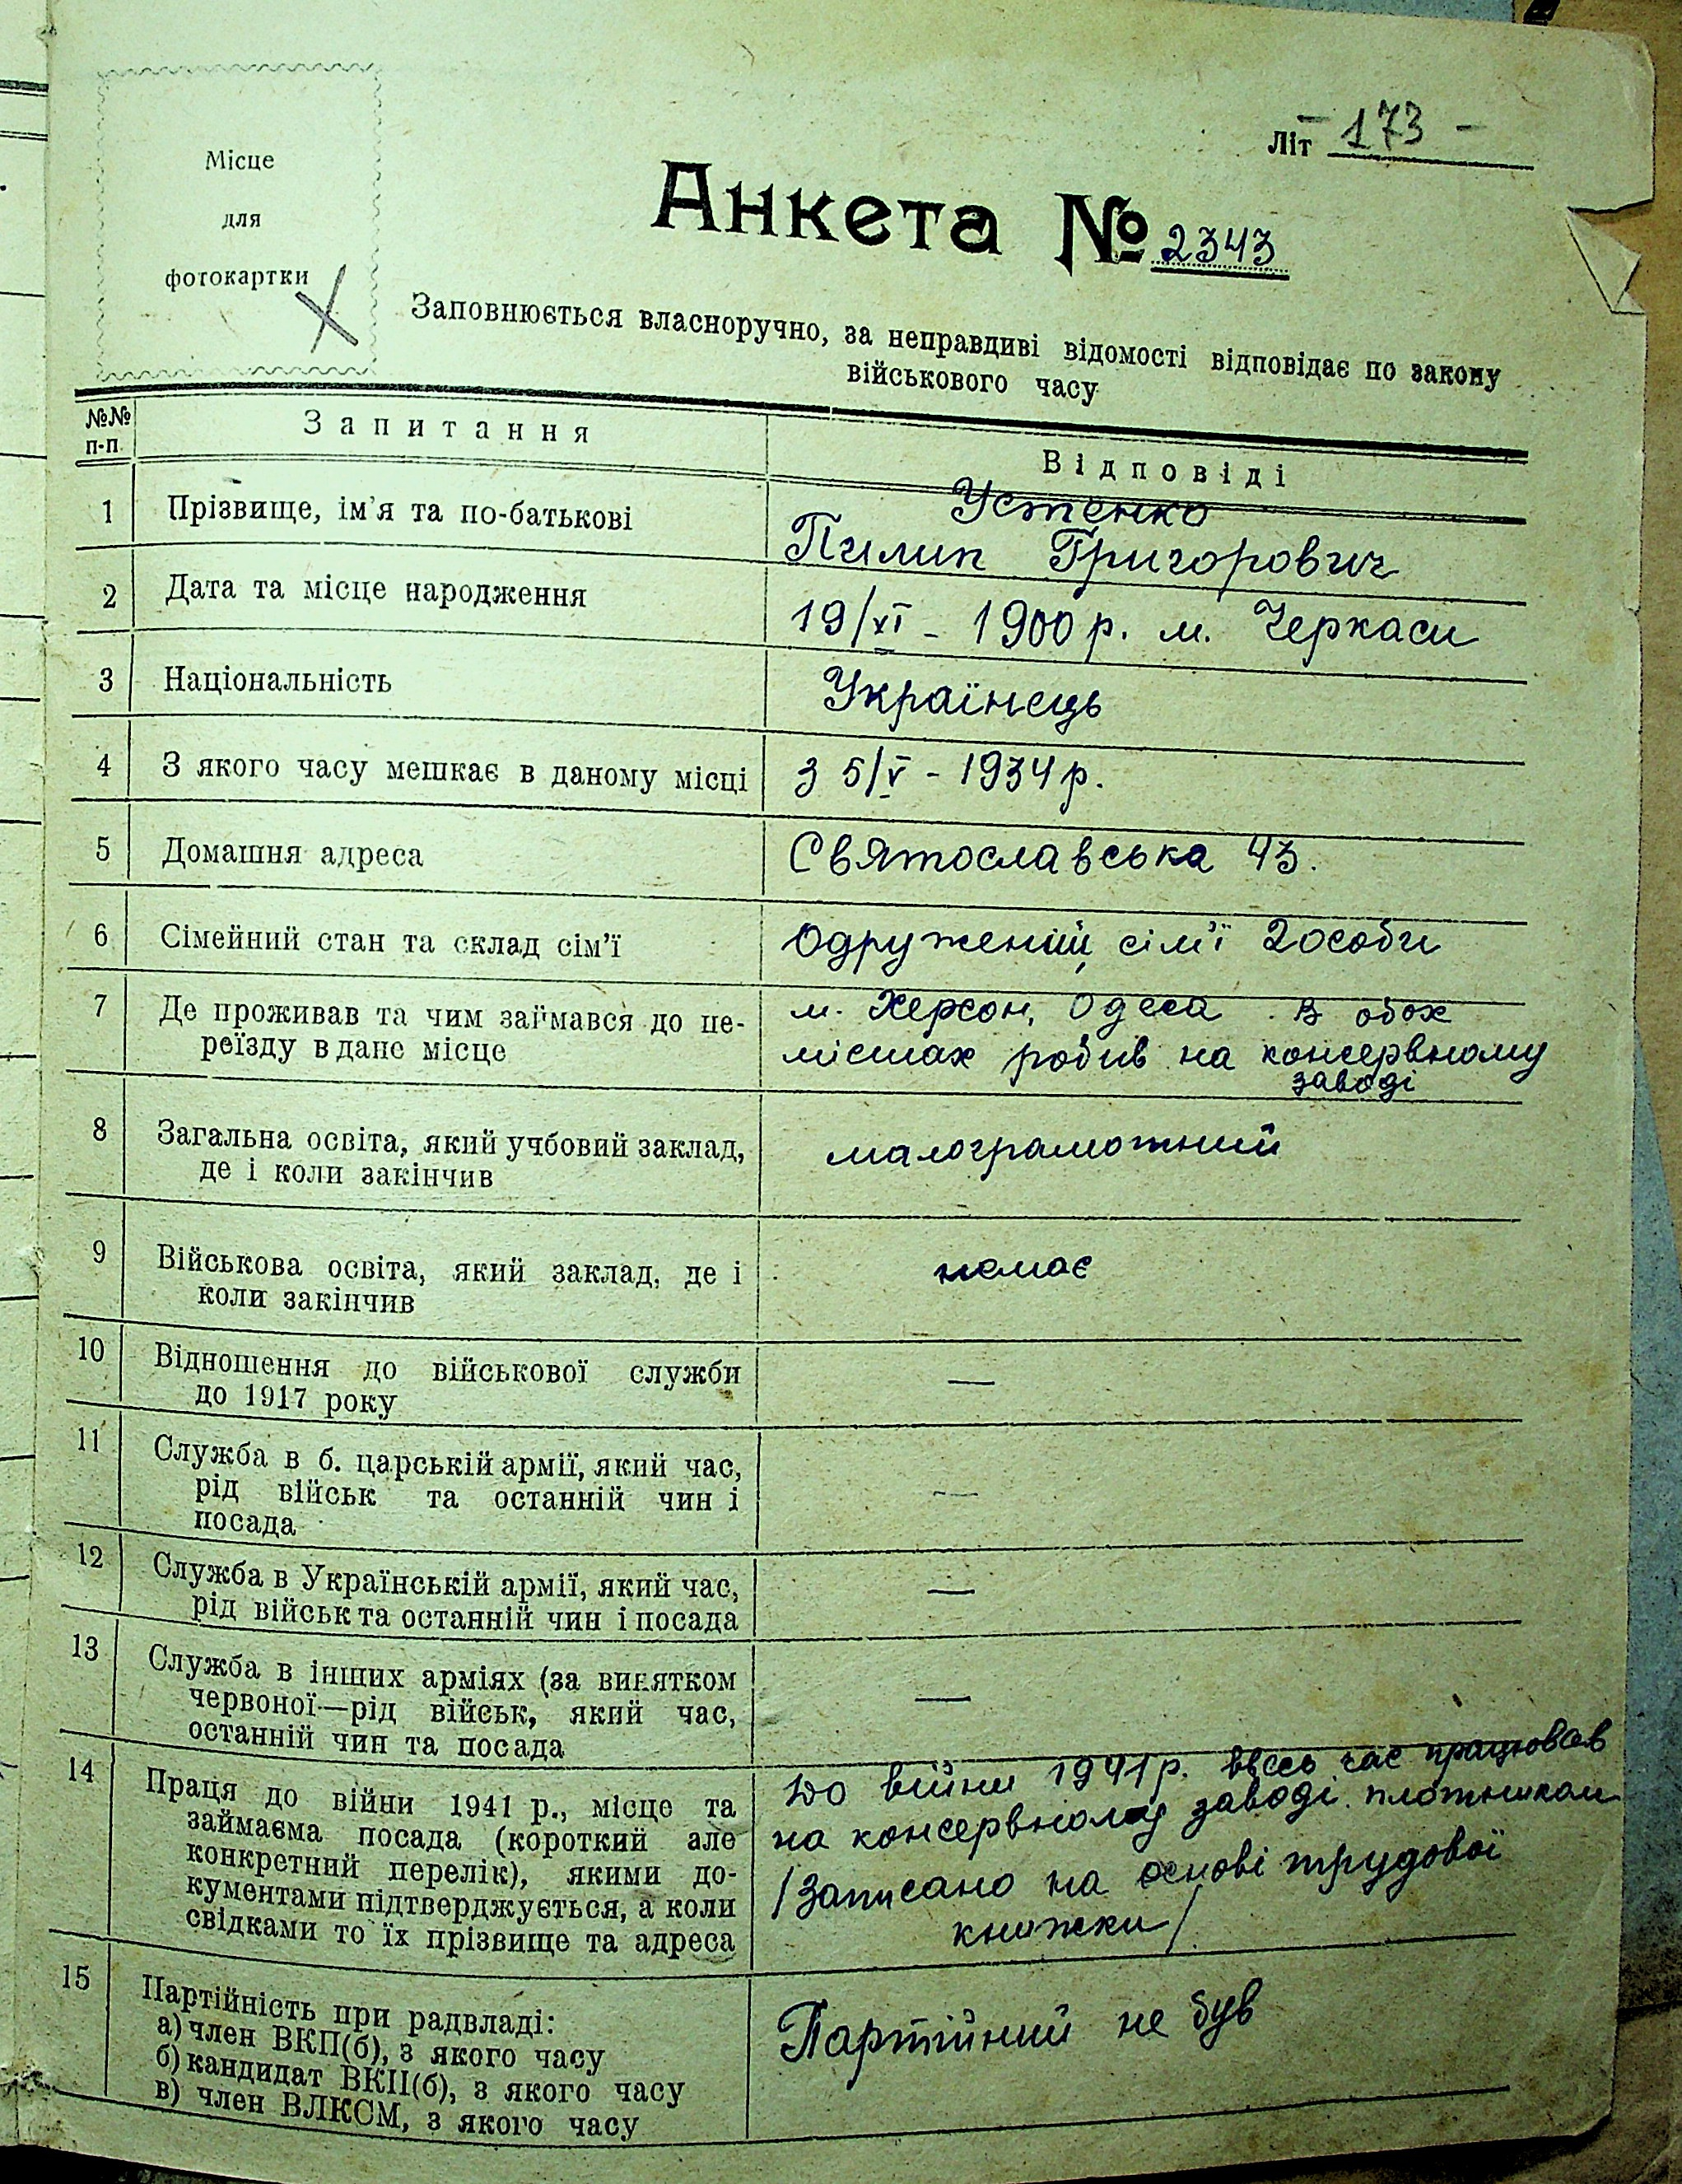 Місце
для
фотокартки
Літ - 173 -
Анкета № 2343
Заповнюється власноручно, за неправдиві відомості відповідає по закону
військового часу
№№
п-п.
Запитання
Відповіді
1 Прізвище, ім'я та по-батькові
Устенко
Пилип Григорович
2 Дата та місце народження
19/XI - 1900 р. м. Черкаси
3 Національність
Українець
4 З якого часу мешкає в даному місці
з 5/V - 1934 р.
5 Домашня адреса
Святославська 43.
6 Сімейний стан та склад сім'ї
Одружений, сім'ї 2 особи
7 Де проживав та чим займався до пе-
реїзду в дане місце
м. Херсон, Одеса. В обох
містах робив на консервному
заводі
8 Загальна освіта, який учбовий заклад,
де і коли закінчив
малограмотний
9 Військова освіта, який заклад, де і
коли закінчив
немає
10 Відношення до військової служби
до 1917 року
—
11 Служба в б. царській армії, який час,
рід військ та останній чин і
посада
—
12 Служба в Українській армії, який час,
рід військ та останній чин і посада
—
13 Служба в інших арміях (за винятком
червоної—рід військ, який час,
останній чин та посада
—
14 Праця до війни 1941 р., місце та
займаєма посада (короткий але
конкретний перелік), якими до-
кументами підтверджується, а коли
свідками то їх прізвище та адреса
До війни 1941 р. ввесь час працював
на консервному заводі плотником
/Записано на основі трудової
книжки/
15 Партійність при радвладі:
а) член ВКП(б), з якого часу
б) кандидат ВКП(б), з якого часу
в) член ВЛКСМ, з якого часу
Партійний не був